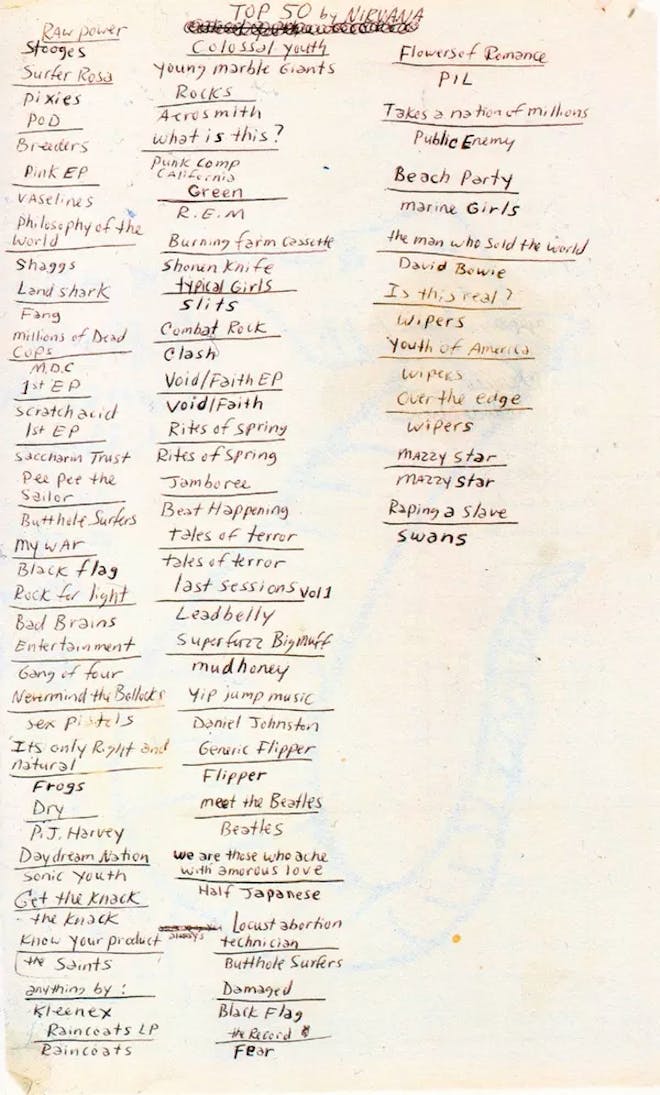 TOP 50 by NIRVANA
Raw power
Stooges
Surfer Rosa
Pixies
POD
Breeders
Pink EP
VAselines
Philosophy of the
world
Shaggs
Land shark
Fang
millions of Dead
Cops
M.D.C
1st EP
scratch acid
1st EP
Saccharin Trust
Pee pee the
Sailor
Butthole Surfers
My WAr
Black flag
Rock for light
Bad Brains
Entertainment
Gang of four
Nevermind the Bollocks
sex pistols
Its only Right and
natural
Frogs
Dry
P.J. Harvey
Daydream Nation
Sonic Youth
Get the Knack
the Knack
Know your product
the Saints
anything by :
Kleenex
Raincoats LP
Raincoats
Colossal youth
Young marble Giants
Rocks
Aerosmith
what is this?
Punk Comp
California
Green
R.E.M
Burning farm Cassette
Shonen Knife
typical Girls
Slits
Combat Rock
Clash
Void/Faith EP
Void/Faith
Rites of spring
Rites of spring
Jamboree
Beat Happening
tales of terror
tales of terror
last sessions Vol 1
Leadbelly
Superfuzz Bigmuff
mudhoney
Yip jump music
Daniel Johnston
Generic Flipper
Flipper
meet the Beatles
Beatles
we are those who ache
with amorous love
Half Japanese
Locust abortion
technician
Butthole Surfers
Damaged
Black Flag
the Record
Fear
Flowers of Romance
PIL
Takes a nation of millions
Public Enemy
Beach Party
marine Girls
the man who sold the world
David Bowie
Is this real?
Wipers
Youth of America
Wipers
Over the edge
Wipers
mazzy star
mazzy star
Raping a slave
swans